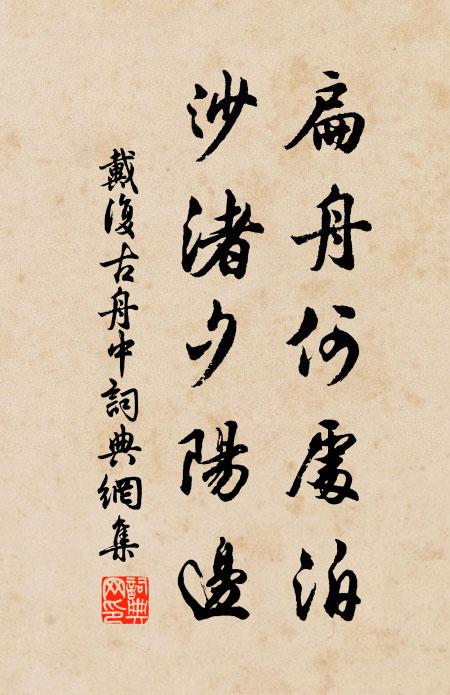 扁舟何處泊
沙渚夕陽邊
戴復古舟中詞典網集